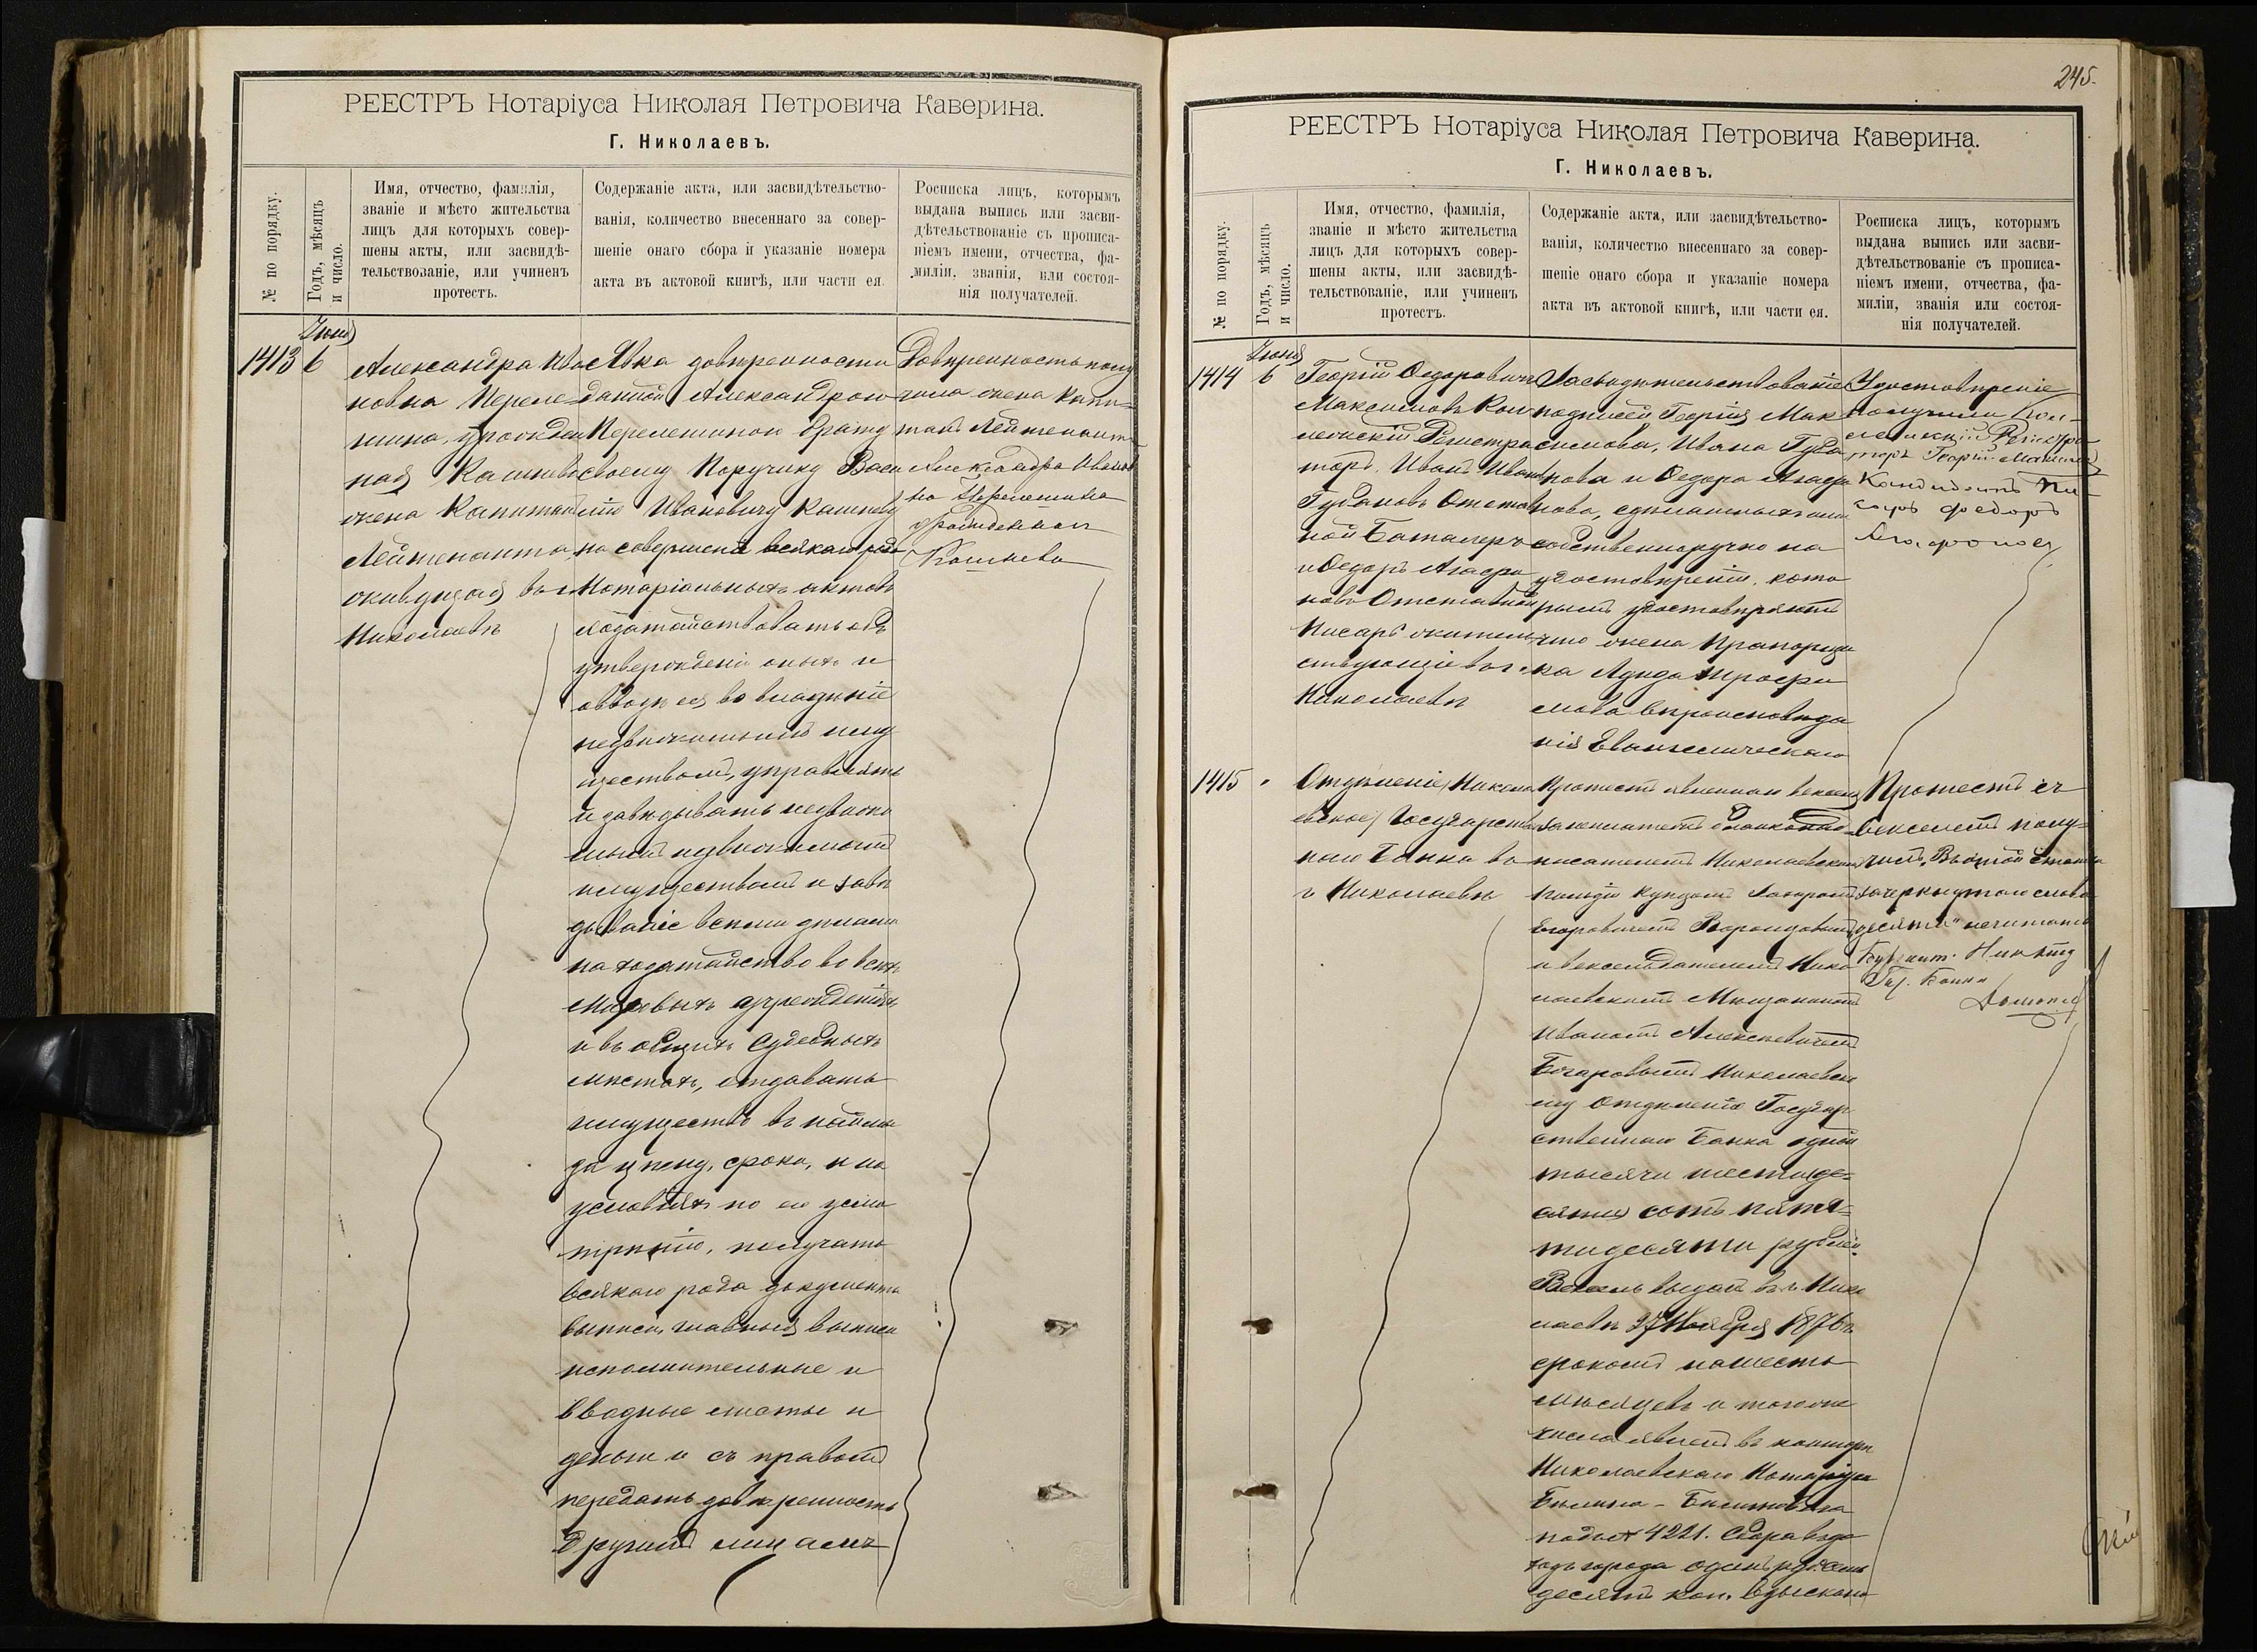 РЕЕСТРЪ Нотаріуса Николая Петровича Каверина.
Г. Николаевъ.
№ по порядку.
Годъ, мѣсяцъ
и число.
Имя, отчество, фамилія,
званіе и мѣсто жительства
лицъ для которыхъ совер-
шены акты, или засвидѣ-
тельствованіе, или учиненъ
протестъ.
Содержаніе акта, или засвидѣтельство-
ванія, количество внесеннаго за совер-
шеніе онаго сбора и указаніе номера
акта въ актовой книгѣ, или части ея.
Росписка лицъ, которымъ
выдана выпись или засви-
дѣтельствованіе съ прописа-
ніемъ имени, отчества, фа-
миліи, званія, или состоя-
нія получателей.
Іюня
1413 6
Александра Ива
новна Переле
шина, урожден
ная Кашнева
жена Капитан
Лейтенанта,
живущая въ г
Николаевѣ
Явка довѣренности
данной Александрою
Перелешиною брату
своему Поручику Васи
лію Ивановичу Кашневу
на совершеніе всякаго рода
Нотаріальныхъ актовъ
ходатайствовать объ
утвержденіи оныхъ и
о вводѣ ея во владѣніе
недвижимымъ иму
ществомъ, управлять
и завѣдывать недвижи
мымъ недвижимымъ
имуществомъ и завѣ
дываніе всѣми дѣлами
на ходатайство во всѣхъ
Мировыхъ учрежденіяхъ
и въ общихъ Судебныхъ
мѣстахъ, отдавать
имущество въ наймы
за цѣну, сроки, и на
условіяхъ по его усмо
трѣнію, получать
всякаго рода документы
выписи, главныя выписи
исполнительные и
вводные листы и
деньги и съ правомъ
передать довѣренность
другимъ лицамъ
Довѣренность полу
чила жена Капи=
танъ Лейтенанта
Александра Иванов
на Перелешина
урожденная
Кашнева
245.
РЕЕСТРЪ Нотаріуса Николая Петровича Каверина.
Г. Николаевъ.
№ по порядку.
Годъ, мѣсяцъ
и число.
Имя, отчество, фамилія,
званіе и мѣсто жительства
лицъ для которыхъ совер-
шены акты, или засвидѣ-
тельствованіе, или учиненъ
протестъ.
Содержаніе акта, или засвидѣтельство-
ванія, количество внесеннаго за совер-
шеніе онаго сбора и указаніе номера
акта въ актовой книгѣ, или части ея.
Росписка лицъ, которымъ
выдана выпись или засви-
дѣтельствованіе съ прописа-
ніемъ имени, отчества, фа-
миліи, званія или состоя-
нія получателей.
Іюня
1414 6
Георгій Ѳедоровичъ
Максимовъ Кол
лежскій Регистра
торъ, Иванъ Иван
Губановъ Отстав
ной Баталеръ
и Ѳедоръ Агафо
новъ Отставной
Писарь жительс
ствующіе въ г.
Николаевѣ
Засвидѣтельствованіе
подписей Георгія Мак
симова, Ивана Губа
нова и Ѳедора Агафо
нова, сдѣланныхъ ими
собственноручно на
удостовѣреніи, кото
рымъ удостовѣряютъ
что жена Прапорщи
ка Трофи
мова вѣроисповѣда
нія Евангелическаго
Удостовѣреніе
получили Кол-
лежскій Регистра
торъ Георгій Максимовъ
Кандидатъ Пи-
сарь Федоръ
Агафоновъ
1415 "
Отдѣленіе Никола
евское Государствен
наго Банка въ
г Николаевѣ
Протестъ векселя
Николаевскимъ
купцомъ
Егоровичемъ
и векселедателемъ Нико
лаевскимъ Мѣщаниномъ
Иваномъ Алексѣевичемъ
Николаевско
му Отдѣленію Государ
ственнаго Банка одной
тысячи шестиде=
сяти сотъ пяти=
тидесяти рублей.
Вексель выданъ въ г. Нико
лаевѣ 27 Ноября 1876 г.
срокомъ на шесть
мѣсяцевъ и того же
числа явленъ въ конторѣ
Николаевскаго Нотаріуса
подъ № 4221. Сбора въ до
ходъ города одинъ руб. семь
десятъ коп. взыскано
Протестъ съ
векселемъ полу=
чилъ. Въ этой статьѣ
зачеркнутаго слова
„десяти" не читать
Гос. Банка